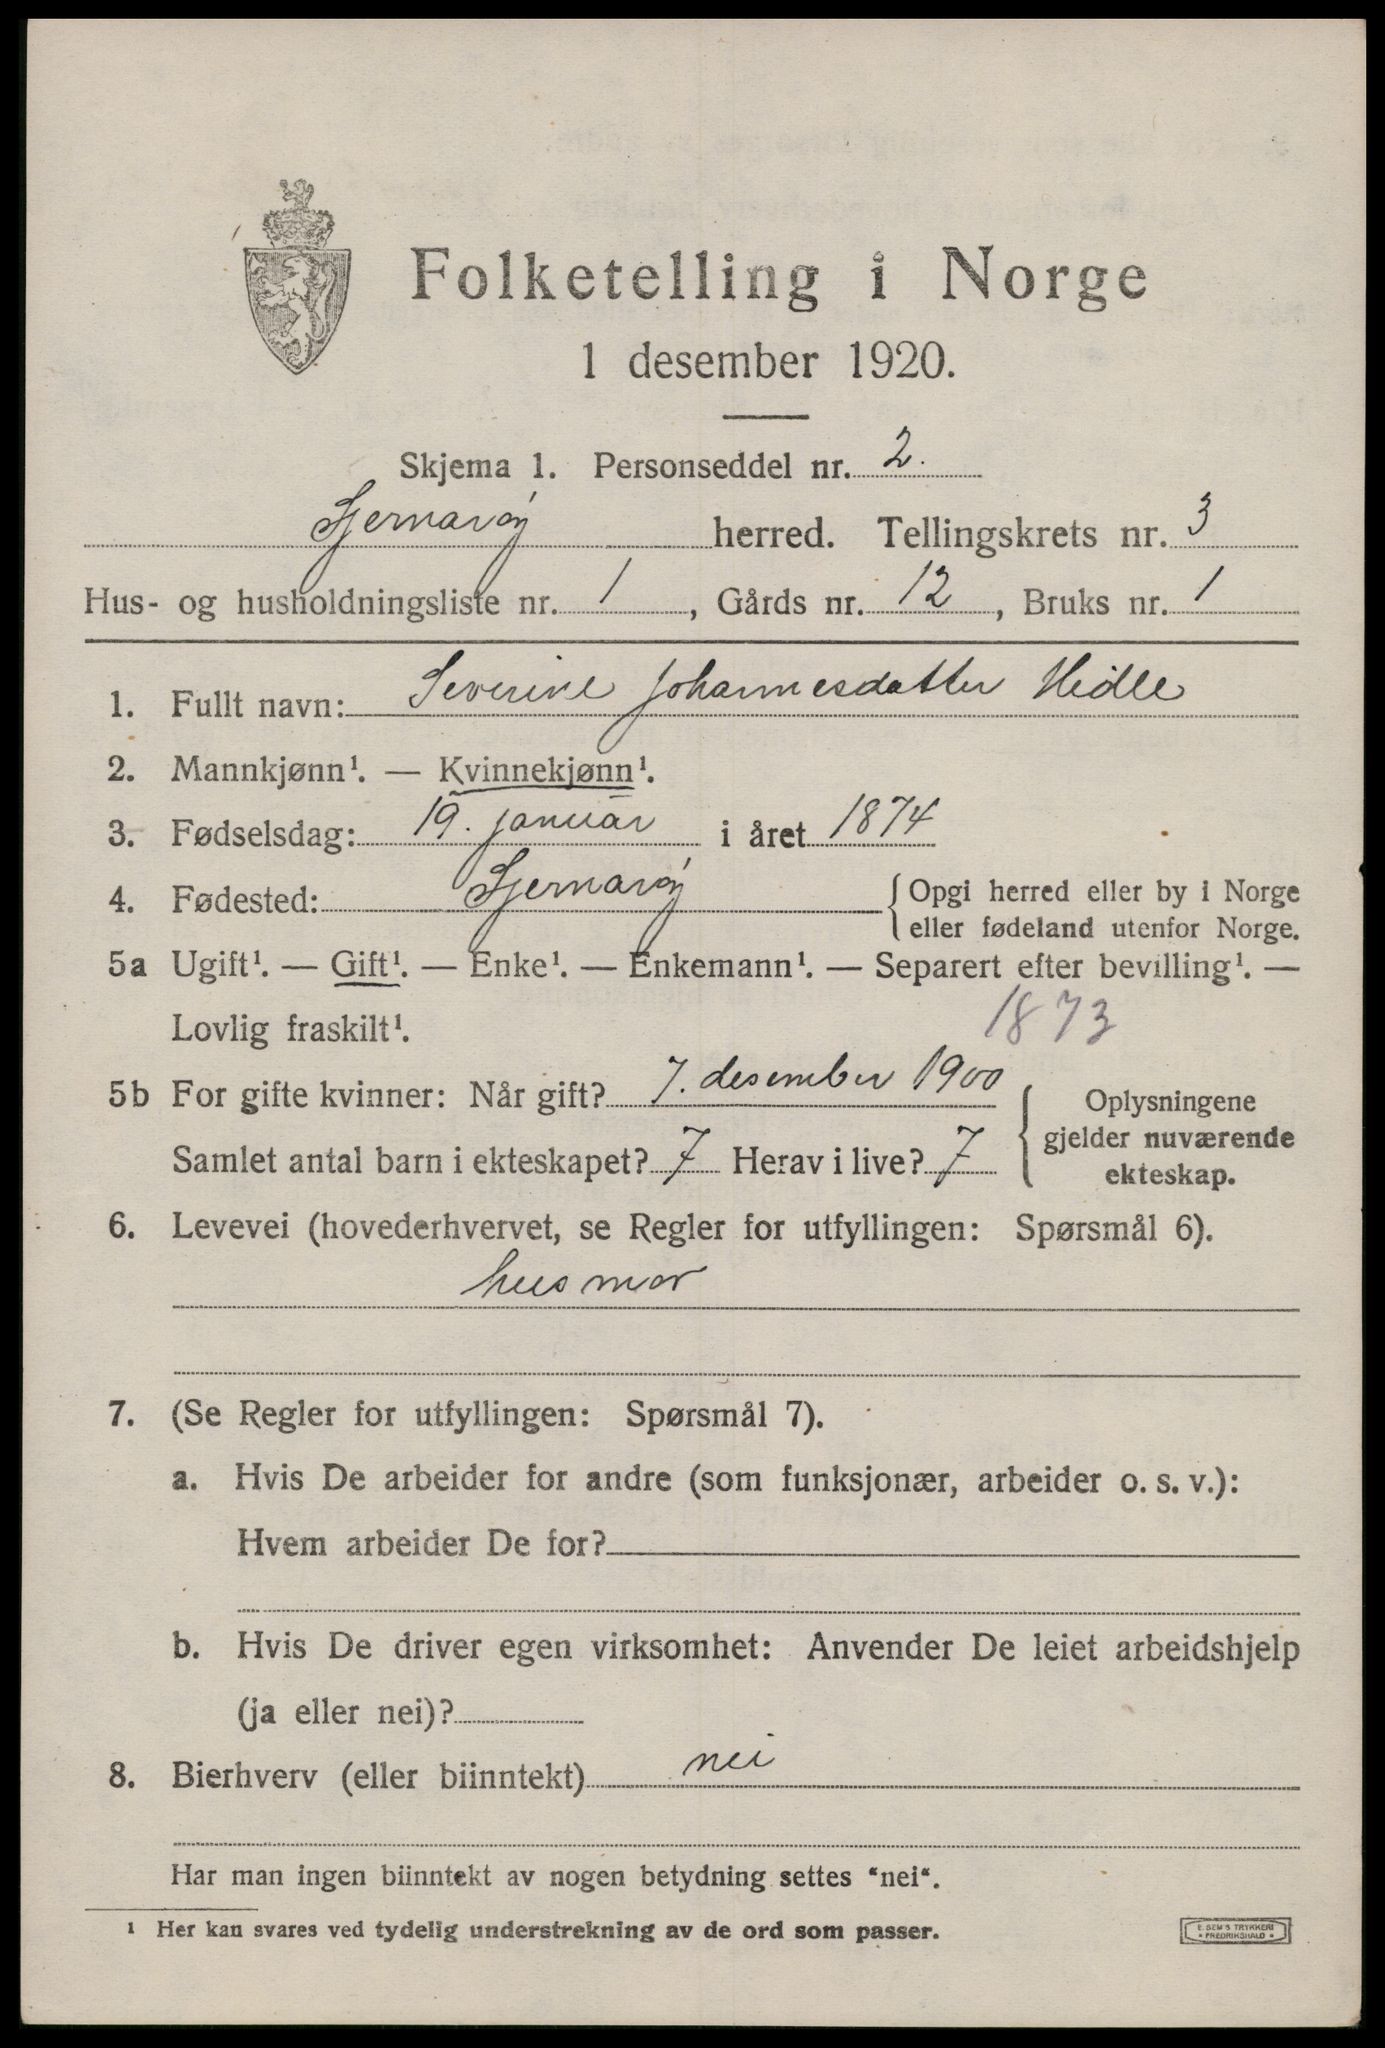 Folketelling i Norge
1 desember 1920.
Skjema 1. Personseddel nr. 2.
Sjernarøy herred. Tellingskrets nr. 3
Hus- og husholdningsliste nr. 1, Gårds nr. 12, Bruks nr. 1
1. Fullt navn: Severine Johannesdatter Hidle
2. Mannkjønn¹. — Kvinnekjønn¹.
3. Fødselsdag: 19. januar i året 1874
4. Fødested: Sjernarøy { Opgi herred eller by i Norge
eller fødeland utenfor Norge.
5a Ugift¹. — Gift¹. — Enke¹. — Enkemann¹. — Separert efter bevilling¹. —
Lovlig fraskilt¹. 1873
5b For gifte kvinner: Når gift? 7. desember 1900
Samlet antal barn i ekteskapet? 7 Herav i live? 7
Oplysningene
gjelder nuværende
ekteskap.
6. Levevei (hovederhvervet, se Regler for utfyllingen: Spørsmål 6).
husmor
7. (Se Regler for utfyllingen: Spørsmål 7).
a. Hvis De arbeider for andre (som funksjonær, arbeider o. s. v.):
Hvem arbeider De for?
b. Hvis De driver egen virksomhet: Anvender De leiet arbeidshjelp
(ja eller nei)?
8. Bierhverv (eller biinntekt) nei
Har man ingen biinntekt av nogen betydning settes "nei".
¹ Her kan svares ved tydelig understrekning av de ord som passer.
E. SEM'S TRYKKERI
FREDRIKSHALD